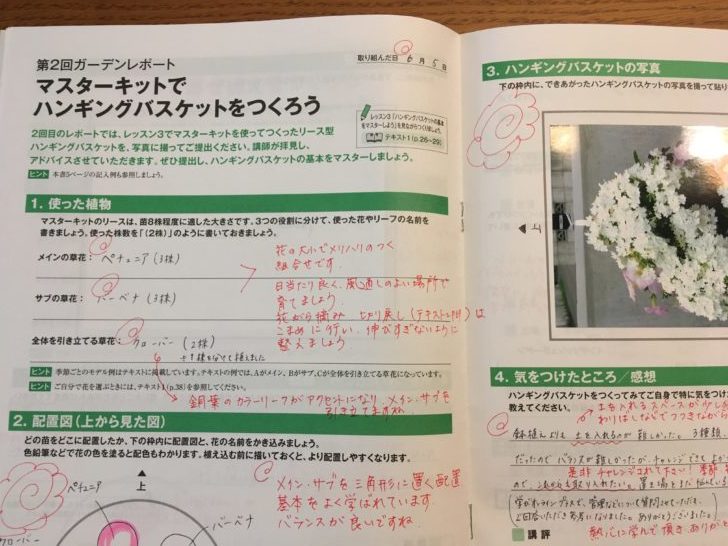 第2回ガーデンレポート
マスターキットで
ハンギングバスケットをつくろう
取り組んだ日 6月5日
レッスン3「ハンギングバスケットの基本
をマスターしよう」を見ながらつくりましょう。
テキスト1(p.26~29)
2回目のレポートでは、レッスン3でマスターキットを使ってつくったリース型
ハンギングバスケットを、写真に撮ってご提出ください。講師が拝見し、
アドバイスさせていただきます。ぜひ提出し、ハンギングバスケットの基本をマスターしましょう。
ヒント 本書5ページの記入例も参照しましょう。
1. 使った植物
マスターキットのリースは、苗8株程度に適した大きさです。3つの役割に分けて、使った花やリーフの名前を
書きましょう。使った株数を「(2株)」のように書いておきましょう。
メインの草花: ペチュニア(3株)
サブの草花: バーベナ(3株)
全体を引き立てる草花: クローバー(2株)
花の大小でメリハリのつく
組合せです。
日当たり良く、風通しのよい場所で
育てましょう。
花がら摘み 切り戻し(テキスト)は
こまめに行い、伸びすぎないように
整えましょう
ヒント 季節ごとのモデル例はテキストに掲載しています。テキストの例では、Aがメイン、Bがサブ、Cが全体を引き立てる草花になっています。
ヒント ご自分で花を選ぶときには、テキスト1(p.38)を参照してください。
銅葉のカラーリーフがアクセントになり、メイン・サブを
引き立てますね
2. 配置図(上から見た図)
どの苗をどこに配置したか、下の枠内に配置図と、花の名前をかき込みましょう。
色鉛筆などで花の色を塗ると配色もわかります。植え込む前に描いておくと、より配置しやすくなります。
▲
上
ペチュニア
バーベナ
クローバー
メイン・サブを三角形に置く配置
基本をよく学ばれています。
バランスが良いですね
3. ハンギングバスケットの写真
下の枠内に、できあがったハンギングバスケットの写真を撮って貼り
▲上
4. 気をつけたところ/感想
ハンギングバスケットをつくってみてご自身で特に気をつけ
教えてください。
土を入れるスペースが少し
鉢植えよりも土を入れるのが難しかった。3種類、
だったのでバランスが難しかったが、チャレンジできて
是非チャレンジされて下さい!
講評
熱心に学んで頂き